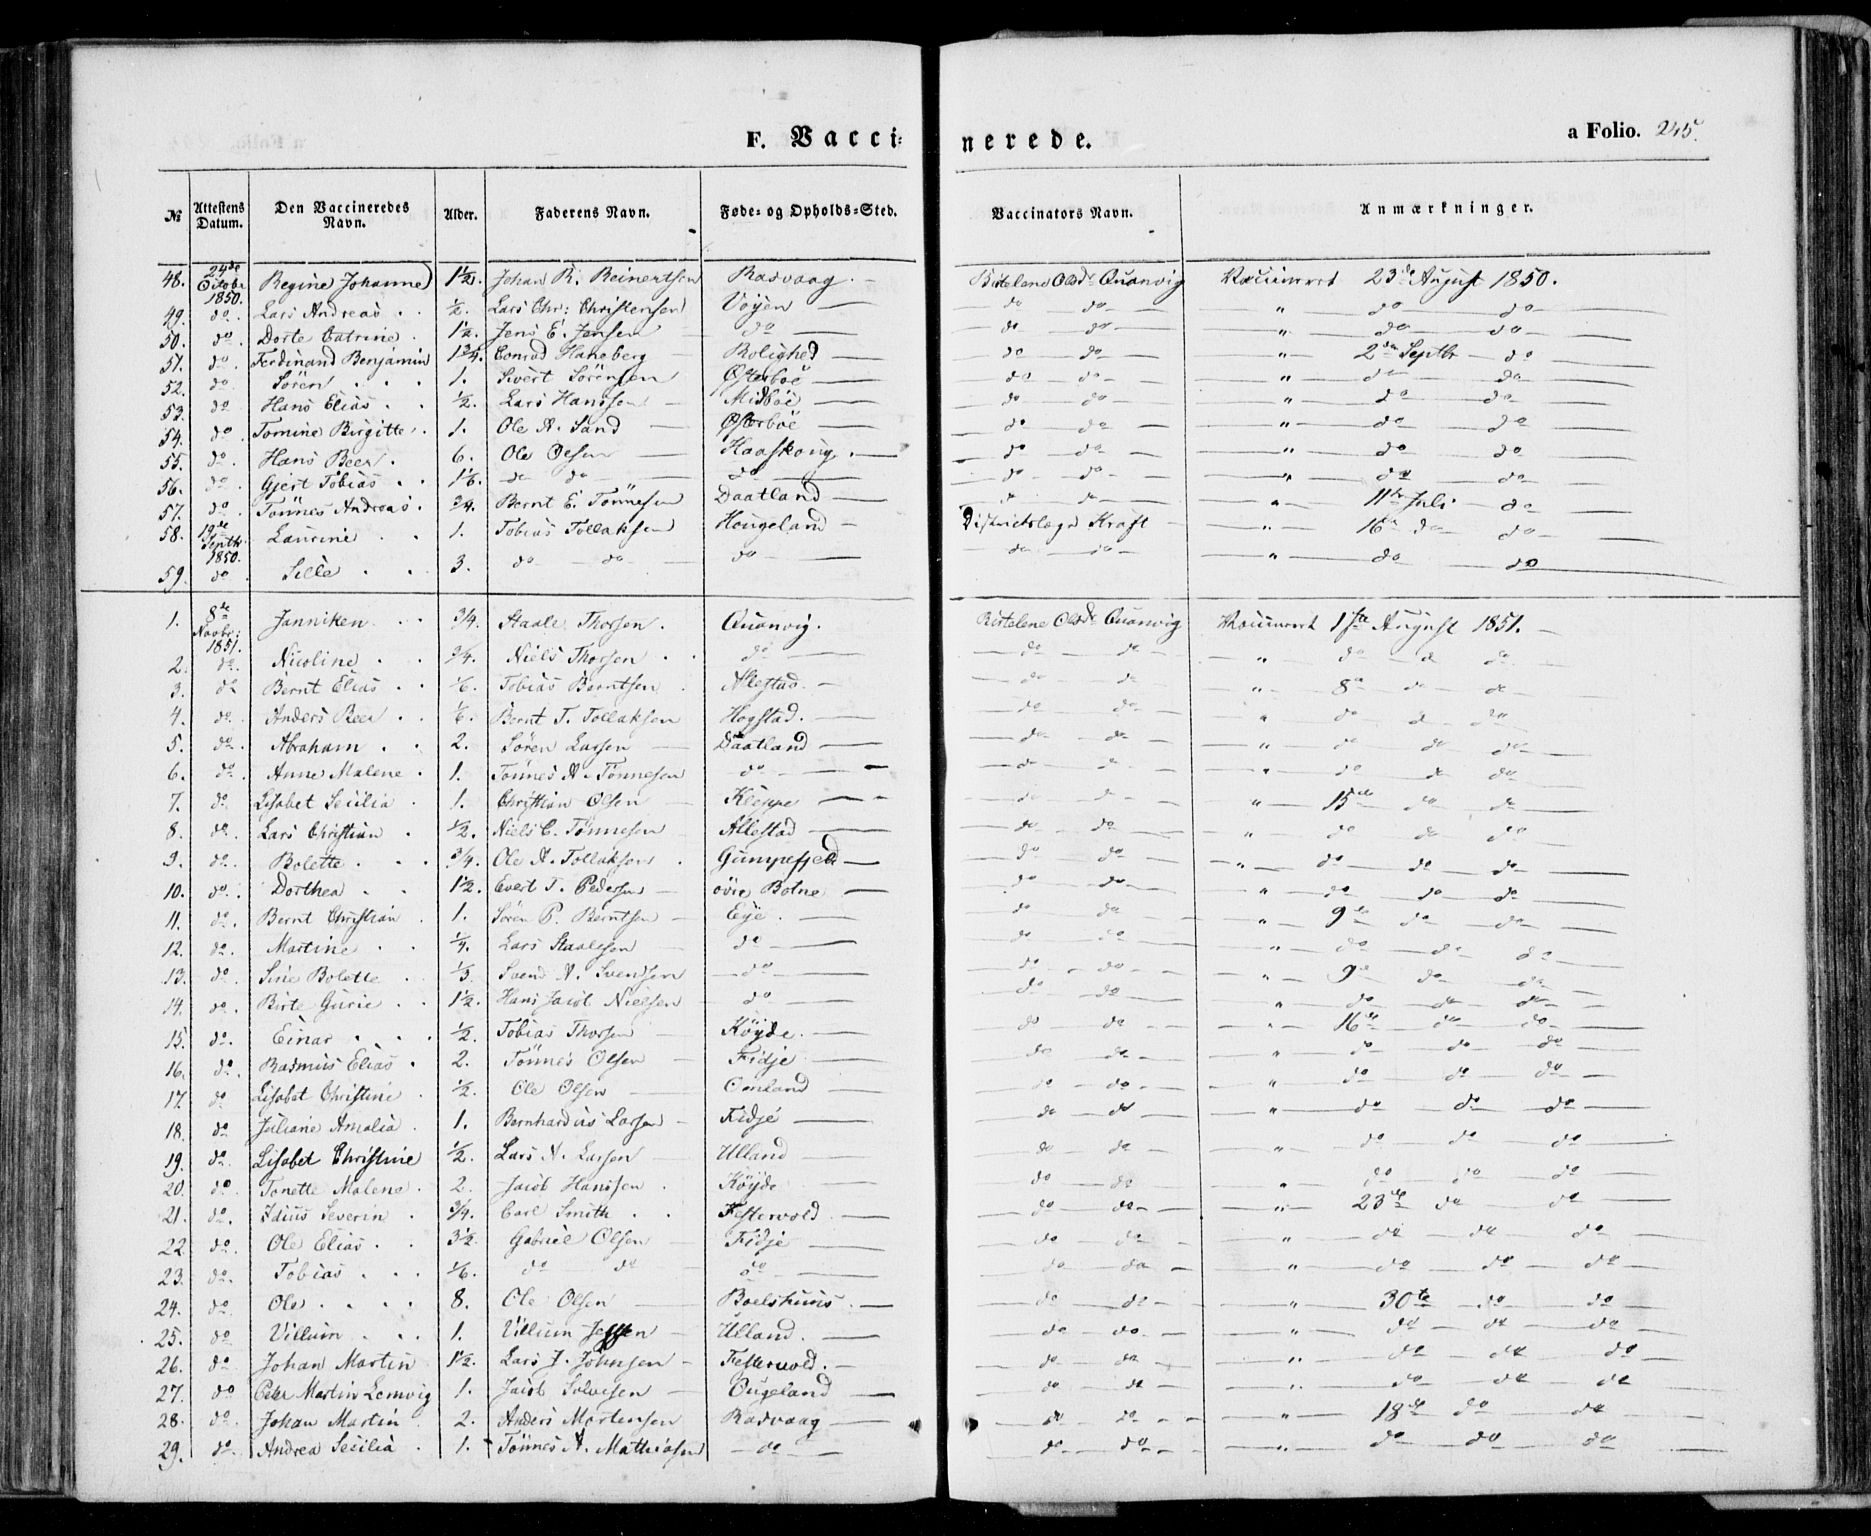 F. Vacci-nerede. a Folio. 245.
№ | Attestens Datum. | Den Vaccineredes Navn. | Alder. | Faderens Navn. | Føde- og Opholds-Sted. | Vaccinators Navn. | Anmærkninger.
48. | 24de Octobr 1850. | Regine Johanne | 1½. | Johan R. Reinertsen | Rasvaag. | Olsd. Quanvig | Vaccineret 23de August 1850.
49. | do. | Lars Andreas | ½. | Lars Chr: Christensen | Vöÿen | do do | " do do
50. | do. | Dorte Catrine | 1½. | Jens E. Jensen | do | do do | " do do
51. | do. | Ferdinand Benjamin | 1¾. | Conrad Haneberg | Rolighed | do do | " 2den Septbr do
52. | do. | Sören | 1. | Sivert Sörensen | Østerböe | do do | " do do
53. | do | Hans Elias | ½. | Lars Hansen | Midböe | do do | " do do
54. | do. | Tomine Birgitte | 1. | Ole A. Sand | Østerböe | do do | " do do
55. | do. | Hans Beer. | 6. | Ole Olsen | | do do | " do do
56. | do. | Gjert Tobias | 1/6. | do do | do | do do | " do do
57. | do. | Tönnes Andreas. | ¾. | Bernt E. Tönnesen | Daatland | do do | " 11te Juli do
58. | 19de Septbr 1850. | Laurine | 1. | Tobias Tollaksen | Heugeland | Districtslæge Kraft | " 16de do do
59. | do | Sille | 3. | do do | do | do do | " do do
1. | 8de Novbr: 1851. | Janniken | 3/4. | Staale Thorsen. | Quanvig. | Olsd. Quanvig | Vaccineret 1ste August 1851.
2. | do. | Nicoline | ¾. | Niels Thorsen | do | do do | " do do do
3. | do | Bernt Elias | 1/6. | Tobias Berntsen | Alestad. | do do | " 8de do do
4. | do. | Anders Beer | 1/6. | Bernt T. Tollaksen | Hogstad. | do do | " do do do
5. | do. | Abraham | 2. | Sören Larsen | Daatland | do do | " do do do
6. | do. | Anne Malene | 1. | Tönnes A. Tönnesen | do | do do | " do do do
7. | do | Lisabet Secilia | 1. | Christian Olsen | Kleppe | do do | " 15de do do
8. | do. | Lars Christian | ½. | Niels C. Tönnesen | Allestad | do do | " do do do
9. | do. | Bolette | 3/4. | Ole A. Tollaksen | Gumpefjed | do do | " do do do
10. | do. | Dorthea | 1½. | Evert T. Pedersen | övre Botne | do do | " do do do
11. | do. | Bernt Christian | 1. | Sören P. Berntsen | Eÿe. | do do | " 9de do do
12. | do. | Martine | ¼. | Lars Staalesen | do | do do | " do do do
13. | do. | Sine Bolette | 1/3. | Svend A. Svendsen | do | do do | " 9de do do
14. | do. | Birte Gurie | 1½. | Hans Jacob Nielsen | do | do do | " do do do
15. | do. | Einar | ½. | Tobias Thorsen | Köÿde. | do do | " 16de do do
16. | do. | Rasmus Elias | 2. | Tönnes Olsen | Fidje | do do | " do do do
17. | do | Lisabet Christine | ½. | Ole Olsen | Omland | do do | " do do do
18. | do | Juliane Amalia | 1. | Bernhardus Larsen | Fidje | do do | " do do do
19. | do. | Lisabet Christine | ½. | Lars A. Larsen | Ulland | do do | " do do do
20. | do. | Tonette Malene | 2. | Jacob Hansen | Köÿde | do do | do do do
21. | do. | Idius Severin | 3/4. | Carl Smith | Festervold | do do | " 23de do do
22. | do. | Ole Elias | 3½. | Gabriel Olsen | Fidje | do do | " do do do
23. | do. | Tobias | 1/6. | do do | do | do do | " do do do
24. | do. | Ole | 8. | Ole Olsen | Boelshuus. | do do | " 30te do do
25. | do | Villum | 1. | Villum Jessen | Ulland. | do do | " do do do
26. | do. | Johan Martin | 1½. | Lars J. Johnsen | Festervold. | do do | " do do do
27. | do | Peter Martin Lemvig | 1. | Jacob Salvesen | Ougeland | do do | " do do do
28. | do. | Johan Martin | 2. | Anders Mortensen | Rasvaag | do do | " 18de do do
29. | do. | Andrea Secilia | 1. | Tönnes A. Mathiasen | do | do do | " do do do